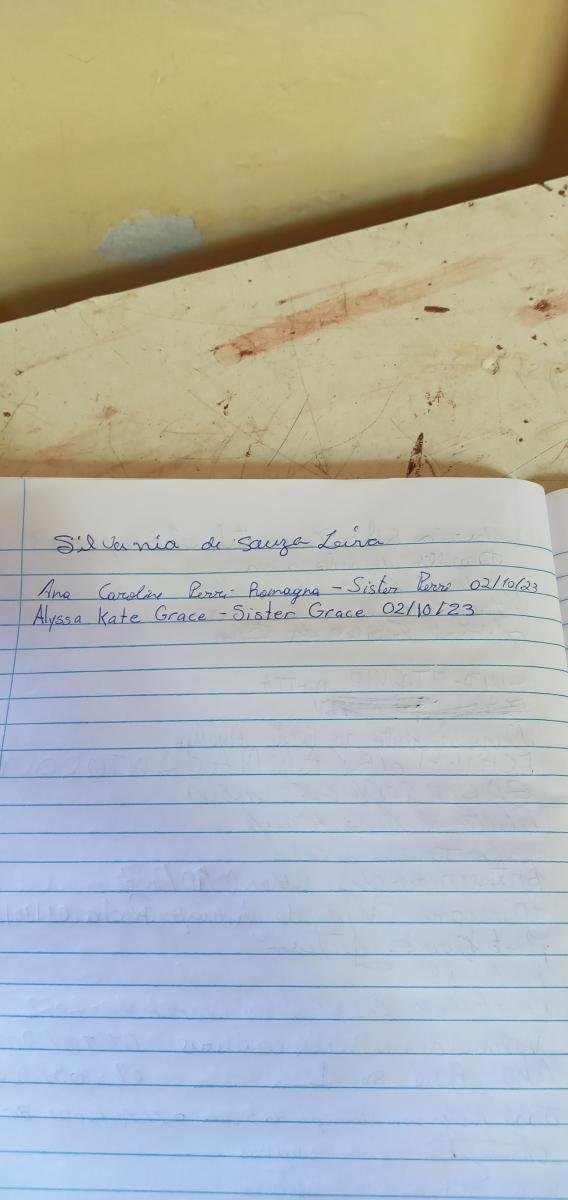 Silvania de Souza Leira
Ana Caroline Perri Romagna - Sister Perri 02/10/23
Alyssa Kate Grace - Sister Grace 02/10/23